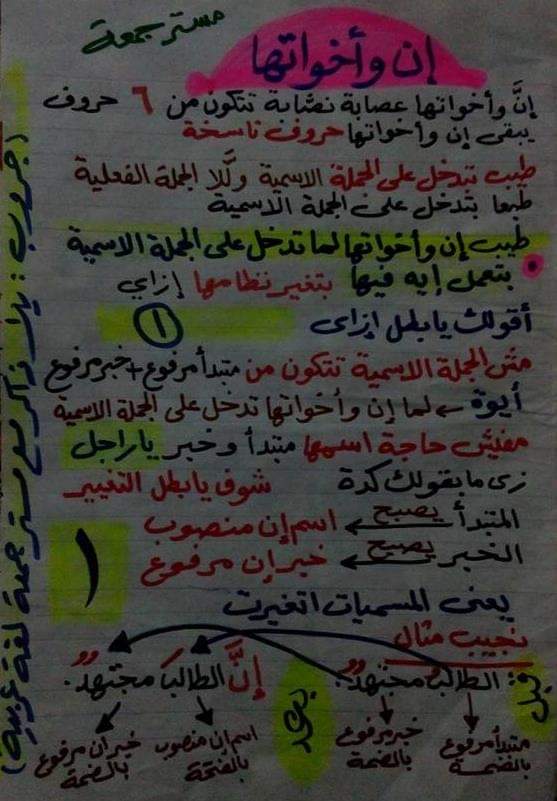 مستر جمعة
إن وأخواتها
إنَّ وأخواتها عصابة نصَّابة تتكون من ٦ حروف
يبقى إن وأخواتها حروف ناسخة
طيب تدخل على الجملة الاسمية ولَّا الجملة الفعلية
طبعا بتدخل على الجملة الاسمية
طيب إن وأخواتها لما تدخل على الجملة الاسمية
بتعمل إيه فيها بتغير نظامها إزاي
أقولك يابطل إزاى ①
مش الجملة الاسمية تتكون من مبتدأ مرفوع + خبر مرفوع
أيوة ← لما إن وأخواتها تدخل على الجملة الاسمية
مفيش حاجة اسمها مبتدأ وخبر ياراجل
زى ما بقولك كدة شوف يابطل التغيير
المبتدأ يصبح ← اسم إن منصوب
الخبر يصبح ← خبر إن مرفوع
١
يعنى المسميات اتغيرت
نجيب مثال
قبل: الطالبُ مجتهدٌ. بعد إنَّ الطالبَ مجتهدٌ.
مبتدأ مرفوع بالضمة
خبر مرفوع بالضمة
اسم إن منصوب بالفتحة
خبر إن مرفوع بالضمة
(جروب: يلا ذاكر مع مستر جمعة لغة عربية)